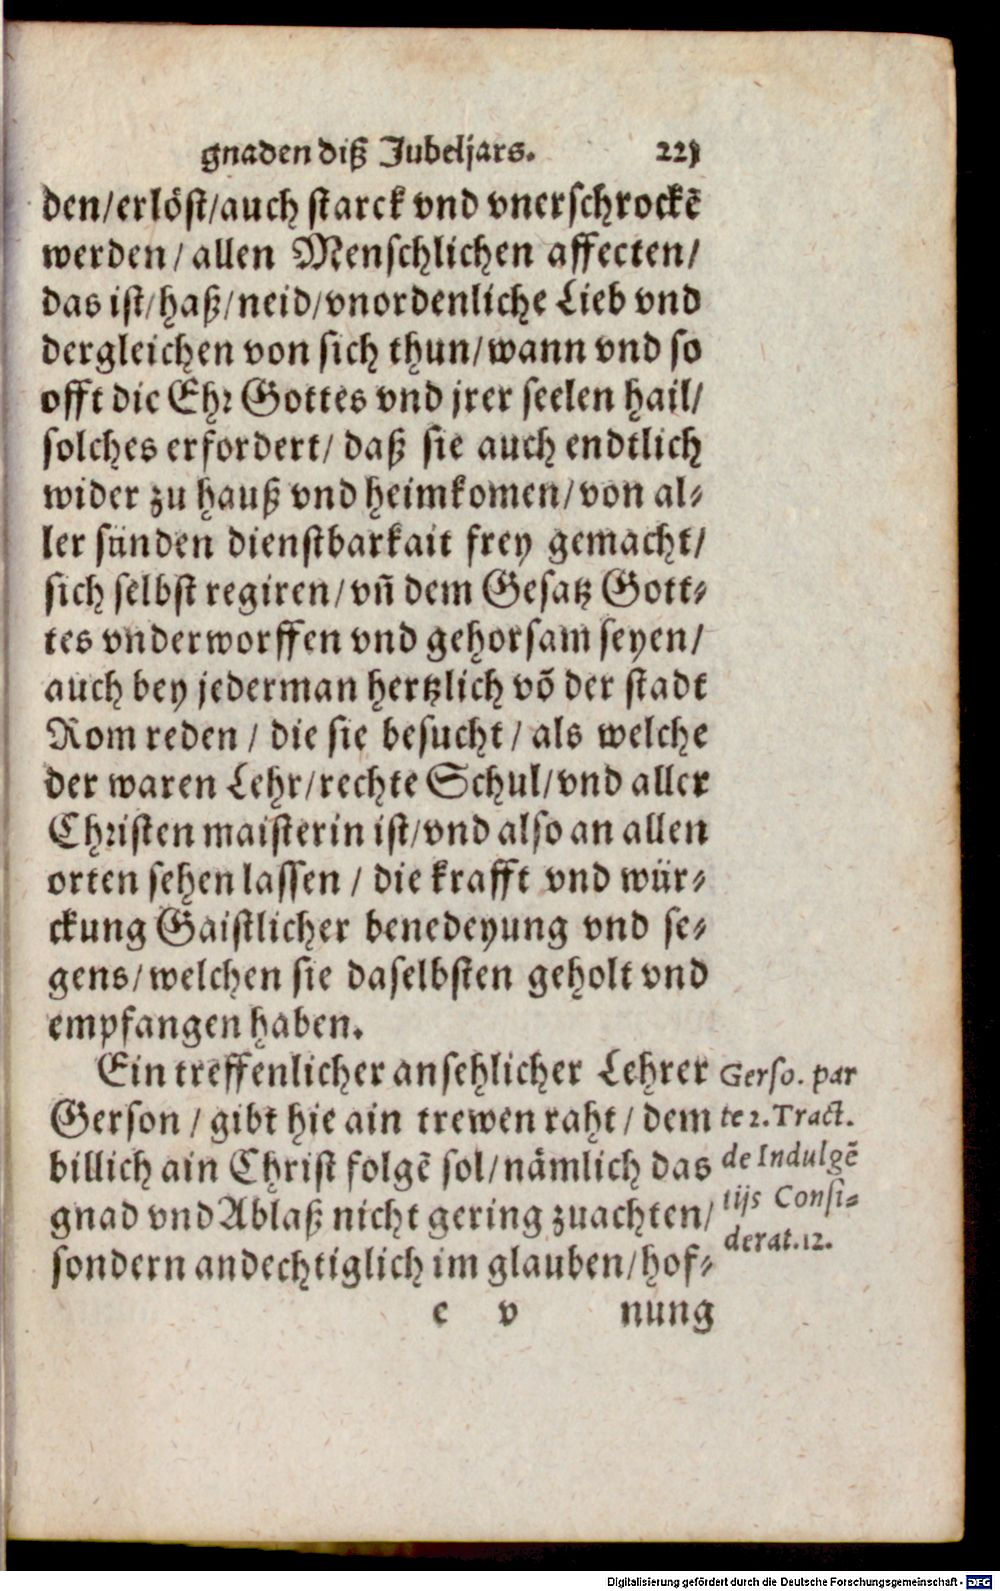 gnaden diß Jubeljars.
den/erlöst/auch starck vnd vnerschrockẽ
werden/ allen Menschlichen affecten/
das ist/haß/neid/vnordenliche Lieb vnd
dergleichen von sich thun/wann vnd so
offt die Ehr Gottes vnd jrer seelen hail/
solches erfordert/ daß sie auch endtlich
wider zu hauß vnd heimkomen/von al-
ler sünden dienstbarkait frey gemacht/
sich selbst regiren/vñ dem Gesatz Gott-
tes vnderworffen vnd gehorsam seyen/
auch bey jederman hertzlich võ der stadt
Rom reden / die sie besucht / als welche
der waren Lehr/rechte Schul/vnd aller
Christen maisterin ist/vnd also an allen
orten sehen lassen / die krafft vnd wür-
ckung Gaistlicher benedeyung vnd se-
gens/welchen sie daselbsten geholt vnd
empfangen haben.
Ein treffenlicher ansehlicher Lehrer
Gerson / gibt hie ain trewen raht / dem
billich ain Christ folgẽ sol/nämlich das
gnad vnd Ablaß nicht gering zuachten/
sondern andechtiglich im glauben/hof-
Gerso. par
te 2. Tract.
de Indulgẽ
tijs Consi-
derat.12.
e v nung
Digitalisierung gefördert durch die Deutsche Forschungsgemeinschaft - DFG